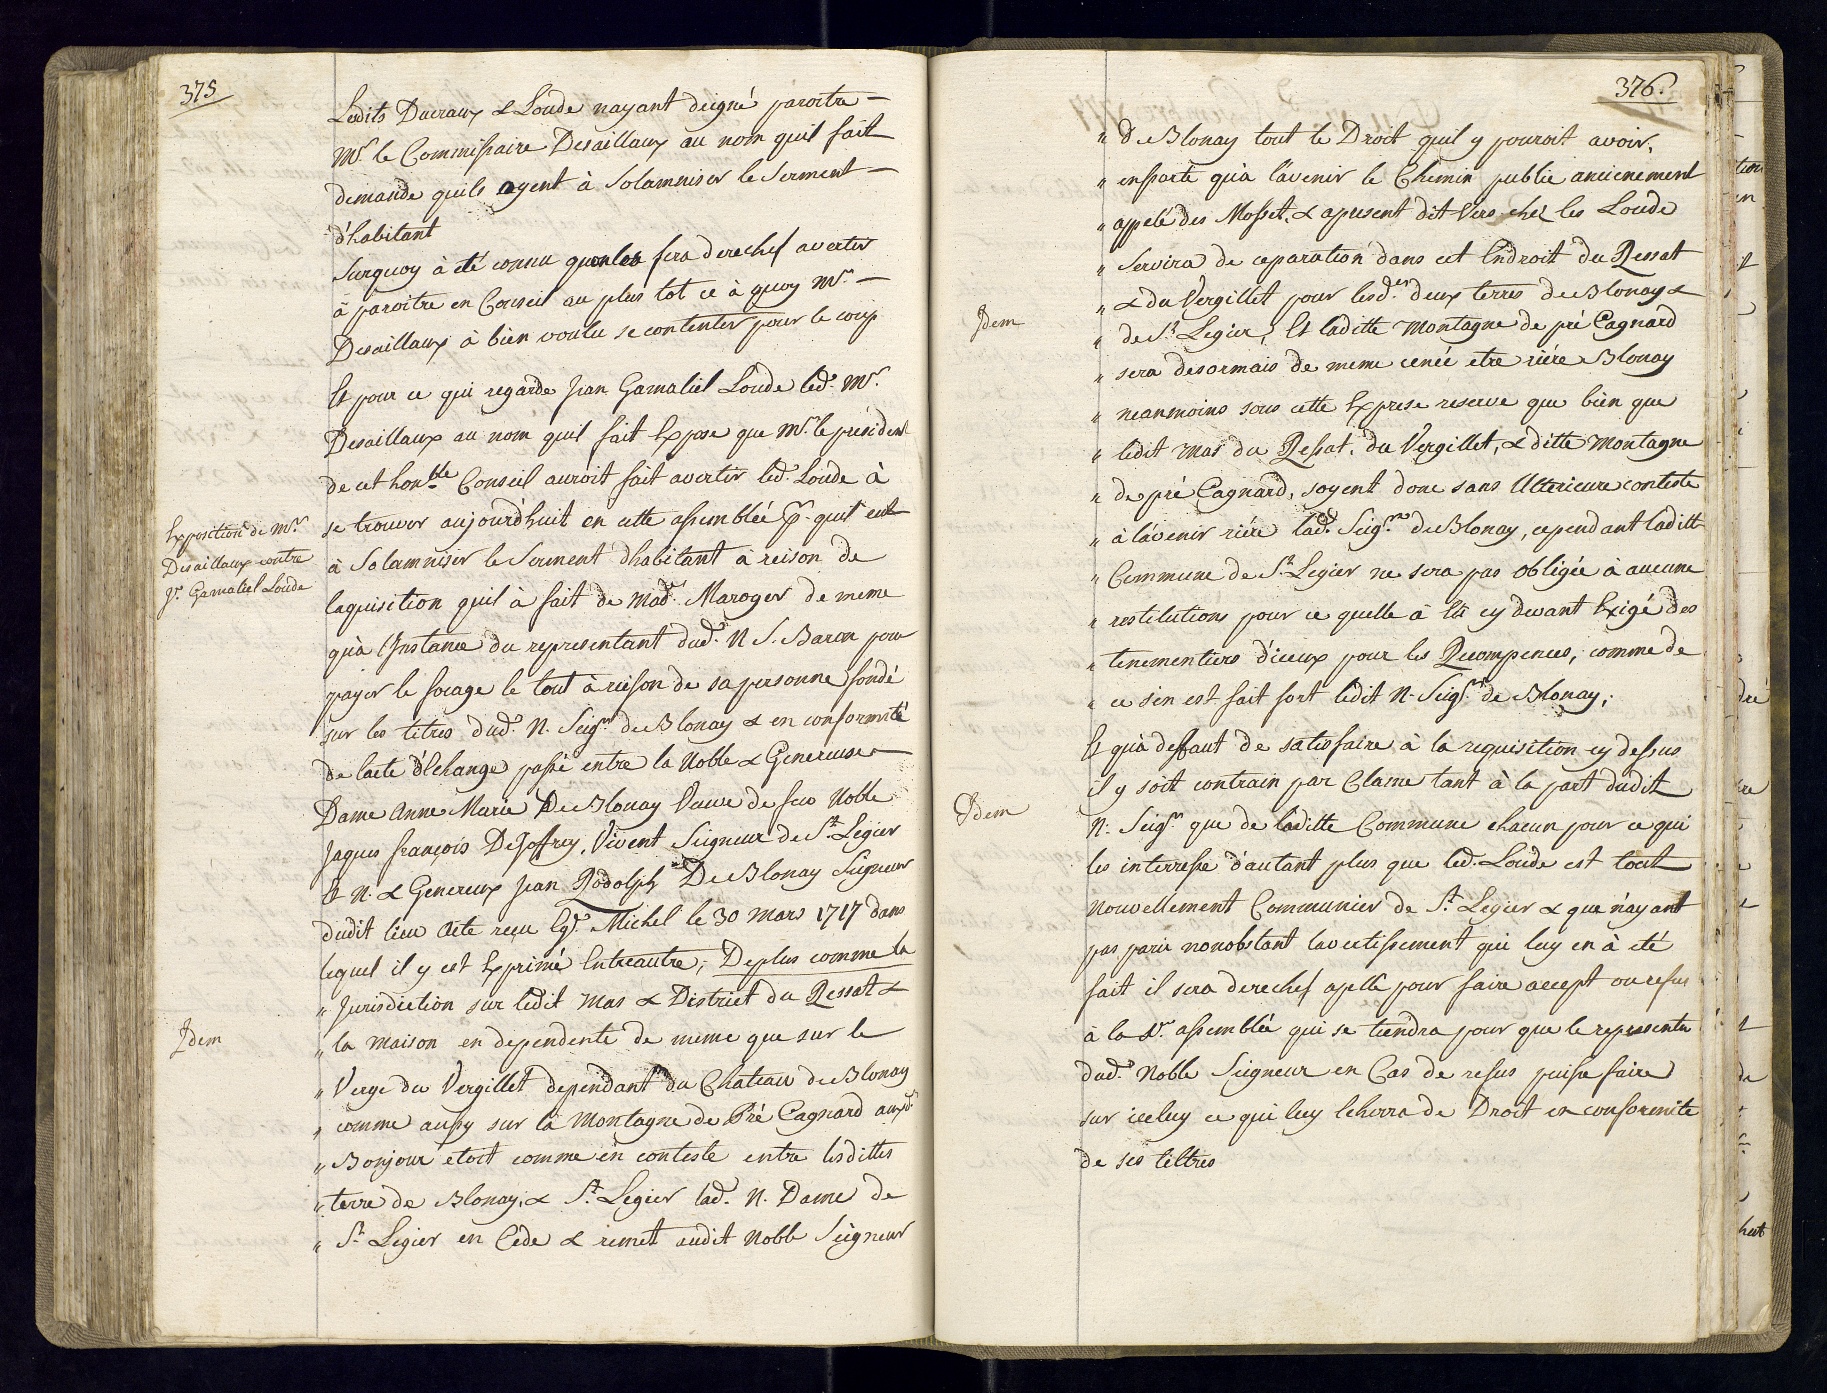 375
Lesdits Ducraux & Loude nayant deigné paroitre –
Mr. le Commissaire Desaillaux au nom quil fait
demande quils ayent à Solamniser le Serment –
d'habitant
Surquoy à été connu quon les fera derechef avertir
à paroitre en Conseil au plus tot ce à quoy Mr. –
Desaillaux à bien voulu se contenter pour le coup
Et pour ce qui regarde Jean Gamaliel Loude led. Mr.
Desaillaux au nom quil fait Expose que Mr. le président
de cet honble Conseil auroit fait avertir led. Loude à
Exposition de Mr.
Desaillaux contre
Jn. Gamaliel Loude
se trouver aujourd'huit en cette assemblée pr. quil eut
à Solamniser le Serment d'habitant à reison de
laquisition quil à fait de Made. Maroger de meme
qu'à l'Instance du representant dud. N. S. Baron pour
payer le focage le tout à reison de sa personne fondé
sur les titres dud. N. Seigr. de Blonay & en conformité
de lacte d'Echange passé entre la Noble & Genereuse
Dame Anne Marie De Blonay Veuve de feu Noble
Jaques François De Joffrey, Vivent Seigneur de St. Legier
Et N. & Genereux Jean Rodolph De Blonay Seigneur
dudit lieu Acte reçu Egr. Michel le 30 Mars 1717 dans
lequel il y est Exprimé Entreautre, Deplus comme la
" Jurisdiction sur ledit Mas & District du Ressat &
Idem
" la maison en dependente de meme que sur le
" Verge du Vergillet dependant du Chateau de Blonay
" comme aussy sur la Montagne de Pré Cagnard auxd.
" Bonjour etoit comme en conteste entre lesdittes
" terre de Blonay, & St. Legier lad. N. Dame de
" St. Legier en Cede & remet audit Noble Seigneur
376.
" De Blonay tout le Droit quil y pouroit avoir,
" ensorte qu'à l'avenir le Chemin public ancienement
" appelé des Mosset, & apresent dit Vers chez les Loude
" Servira de ceparation dans cet Endroit du Ressat
" & du Vergillet pour lesd.es deux terres de Blonay &
Idem
" de St. Legier, Et laditte Montagne de pré Cagnard
" sera desormais de meme cencé etre riére Blonay
" neanmoins sous cette Exprese reserve que bien que
" ledit Mas du Ressat, du Vergillet, & ditte Montagne
" de pré Cagnard, soyent donc sans Ulterieure conteste
" à l'avenir riére lad. Seig.rie de Blonay, cependant laditte
" Commune de St. Legier ne sera pas obligée à aucune
" restitutions pour ce quelle à Eu cy devant Exigé des
" tenementiers d'iceux pour les Recompences, comme de
" ce s'en est fait fort ledit N. Seigr. de Blonay;
Et qu'à deffaut de satisfaire à la requisition cy dessus
il y soit contrain par Clame tant à la part dudit
Idem
N. Seigr. que de laditte Commune chacun pour ce qui
les interresse d'autant plus que led. Loude est tout
Nouvellement Communier de St. Legier & que n'ayant
pas parü nonobstant lavertissement qui luy en à été
fait il sera derechef apellé pour faire accept ou refus
à la 1r. assemblée qui se tiendra pour que le representa
dud. Noble Seigneur en Cas de refus puisse faire
sur iceluy ce qui luy Echerra de Droit en conformite
de ses tiltres